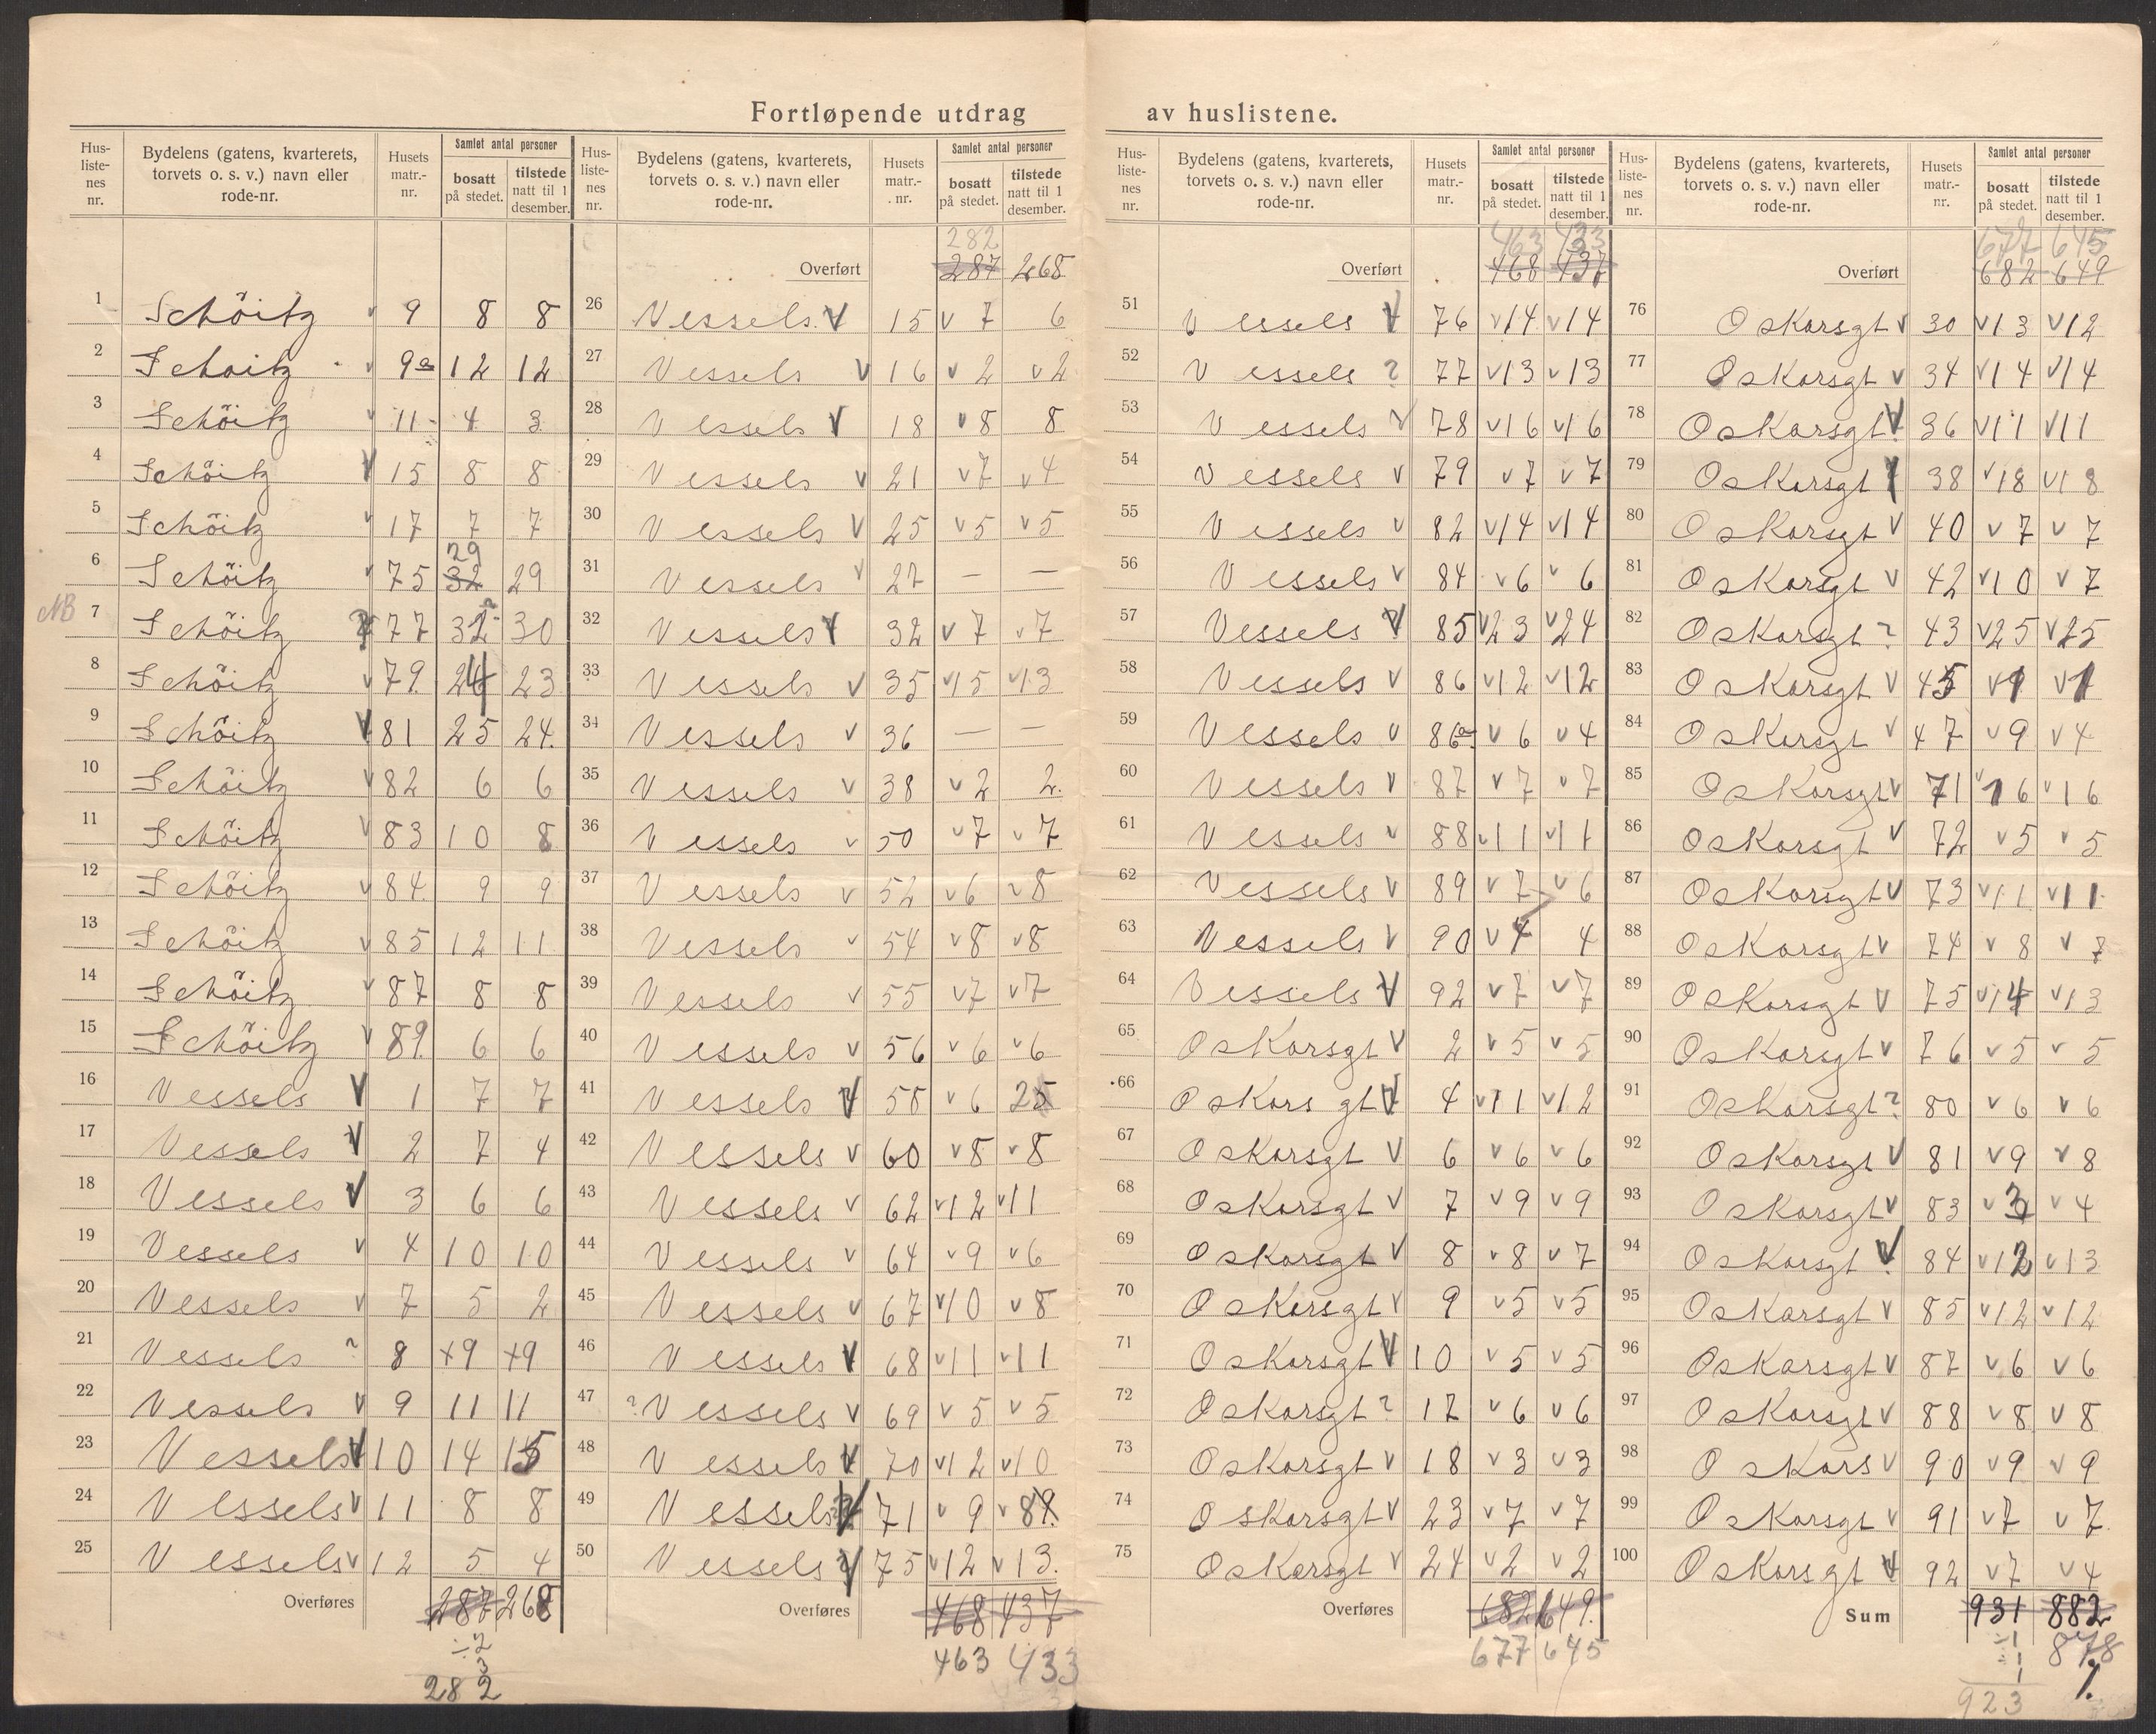 Fortløpende utdrag av huslistene.
Hus-liste-nes nr. | Bydelens (gatens, kvarterets, torvets o. s. v.) navn eller rode-nr. | Husets matr.-nr. | Samlet antal personer bosatt på stedet. | tilstede natt til 1 desember.
1 Schöitz v 9 8 8
2 Schoitz v 9a 12 12
3 Schöitz v 11 4 3
4 Schöitz V 15 8 8
5 Schöitz v 17 7 7
6 Schöitz v 75 32 29 29
NB 7 Schöitz 77 32 30
8 Schöitz v 79. 24 23
9 Schöitz V 81 25 24.
10 Schöitz v 82 6 6
11 Schöitz v 83 10 8
12 Schöitz v 84. 9 9
13 Schöitz v 85 12 11
14 Schöitz v 87 8 8
15 Schöitz v 89. 6 6
16 Vessels V 1 7 7
17 Vessels V 2 7 4
18 Vessels V 3 6 6
19 Vessels v 4 10 10
20 Vessels v 7 5 2
21 Vessels ? 8 +9 +9
22 Vessels v 9 11 11
23 Vessels V 10 14 15
24 Vessels v 11 8 8
25 Vessels v 12 5 4
Overføres 287 268
÷2
3
282
Hus-liste-nes nr. | Bydelens (gatens, kvarterets, torvets o. s. v.) navn eller rode-nr. | Husets matr.-nr. | Samlet antal personer bosatt på stedet. | tilstede natt til 1 desember.
282
Overført 287 268
26 Vessels. V 15 v 7 6
27 Vessels V 16 v 2 v 2
28 Vessels V 18 v 8 8
29 Vessels v 21 v 7 v 4
30 Vessels V 25 v 5 v 5
31 Vessels v 27 — —
32 Vessels V 32 v 7 v 7
33 Vessels v 35 v 15 v 13
34 Vessels v 36 — —
35 Vessels v 38 v 2 2.
36 Vessels v 50 v 7 v 7
37 Vessels v 52 v 6 v 8
38 Vessels v 54 v 8 v 8
39 Vessels v 55 v 7 v 7
40 Vessels v 56 v 6 v 6
41 Vessels V 58 v 6 25
42 Vessels v 60 v 8 v 8
43 Vessels v 62 v 12 v 11
44 Vessels v 64 v 9 v 6
45 Vessels v 67 v 10 v 8
46 Vessels V 68 v 11 v 11
47 ? Vessels v 69 v 5 v 5
48 Vessels V 70 v 12 v 10
49 Vessels V 71 v 9 v 8
50 Vessels V 75 v 12 v 13.
Overføres 468 437
463 433
Hus-liste-nes nr. | Bydelens (gatens, kvarterets, torvets o. s. v.) navn eller rode-nr. | Husets matr.-nr. | Samlet antal personer bosatt på stedet. | tilstede natt til 1 desember.
463 433
Overført 468 437
51 Vessels V 76 v 14 v 14
52 Vessels ? 77 v 13 v 13
53 Vessels v 78 v 16 v 16
54 Vessels v 79 v 7 v 7
55 Vessels v 82 v 14 v 14
56 Vessels v 84 v 6 v 6
57 Vessels V 85 v 23 v 24
58 Vessels v 86 v 12 v 12
59 Vessels v 86a v 6 v 4
60 Vessels v 87 v 7 v 7
61 Vessels v 88 v 11 v 11
62 Vessels v 89 v 7 v 6
63 Vessels v 90 v 4 4
64 Vessels V 92 v 7 v 7
65 Oskarsgt v 2 v 5 v 5
66 Oskars gt V 4 v 11 v 12
67 Oskarsgt V 6 v 6 v 6
68 Oskarsgt v 7 v 9 v 9
69 Oskarsgt v 8 v 8 v 7
70 Oskarsgt v 9 v 5 v 5
71 Oskarsgt V 10 v 5 v 5
72 Oskarsgt ? 17 v 6 v 6
73 Oskarsgt v 18 v 3 v 3
74 Oskarsgt v 23 v 7 v 7
75 Oskarsgt v 24 v 2 v 2
Overføres 682 649.
677 645
Hus-liste-nes nr. | Bydelens (gatens, kvarterets, torvets o. s. v.) navn eller rode-nr. | Husets matr.-nr. | Samlet antal personer bosatt på stedet. | tilstede natt til 1 desember.
677 645
Overført 682 649
76 Oskarsgt v 30 v 13 v 12
77 Oskarsgt v 34 v 14 v 14
78 Oskarsgt V 36 v 11 v 11
79 Oskarsgt V 38 v 18 v 18
80 Oskarsgt v 40 v 7 v 7
81 Oskarsgt v 42 v 10 v 7
82 Oskarsgt ? 43 v 25 v 25
83 Oskarsgt v 45 v 1 v 1
84 Oskarsgt v 47 v 9 v 4
85 Oskarsgt v 71 v 16 v 16
86 Oskarsgt v 72 v 5 v 5
87 Oskarsgt v 73 v 11 v 11
88 Oskarsgt v 74 v 8 v 7
89 Oskarsgt v 75 v 14 v 13
90 Oskarsgt v 76 v 5 v 5
91 Oskarsgt ? 80 v 6 v 6
92 Oskarsgt V 81 v 9 v 8
93 Oskarsgt v 83 v 3 v 4
94 Oskarsgt V 84 v 12 v 13
95 Oskarsgt v 85 v 12 v 12
96 Oskarsgt v 87 v 6 v 6
97 Oskarsgt v 88 v 8 v 8
98 Oskars v 90 v 9 v 9
99 Oskarsgt v 91 v 7 v 7
100 Oskarsgt V 92 v 7 v 4
Sum 931 882
÷1 878
÷1
1
923